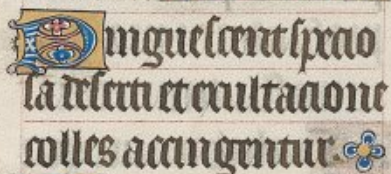 Pinguescent specio
sa deserti et exultacione
colles accingentur.